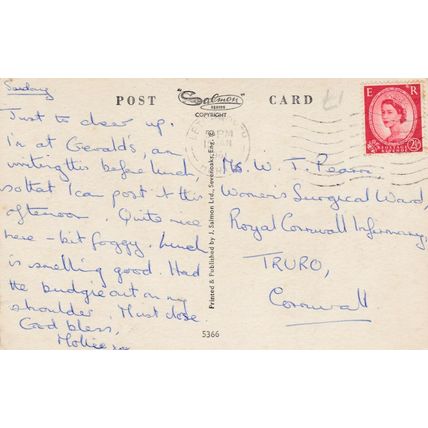 Sunday
POST "Salmon" CARD
SERIES
COPYRIGHT
Just to clear up.
I'm at Gerald's, am
writing this before lunch,
so that I can post it this
afternoon. Quite nice
here - bit foggy. Lunch
is smelling good. Had
the budgie out on my
shoulder. Must close
God bless,
Mollie xx
Printed & Published by J. Salmon Ltd., Sevenoaks, Eng.
5366
E R
POSTAGE REVENUE
2½D
PM
Mrs. W. J. Pearn,
Women's Surgical Ward,
Royal Cornwall Infirmary,
TRURO,
Cornwall